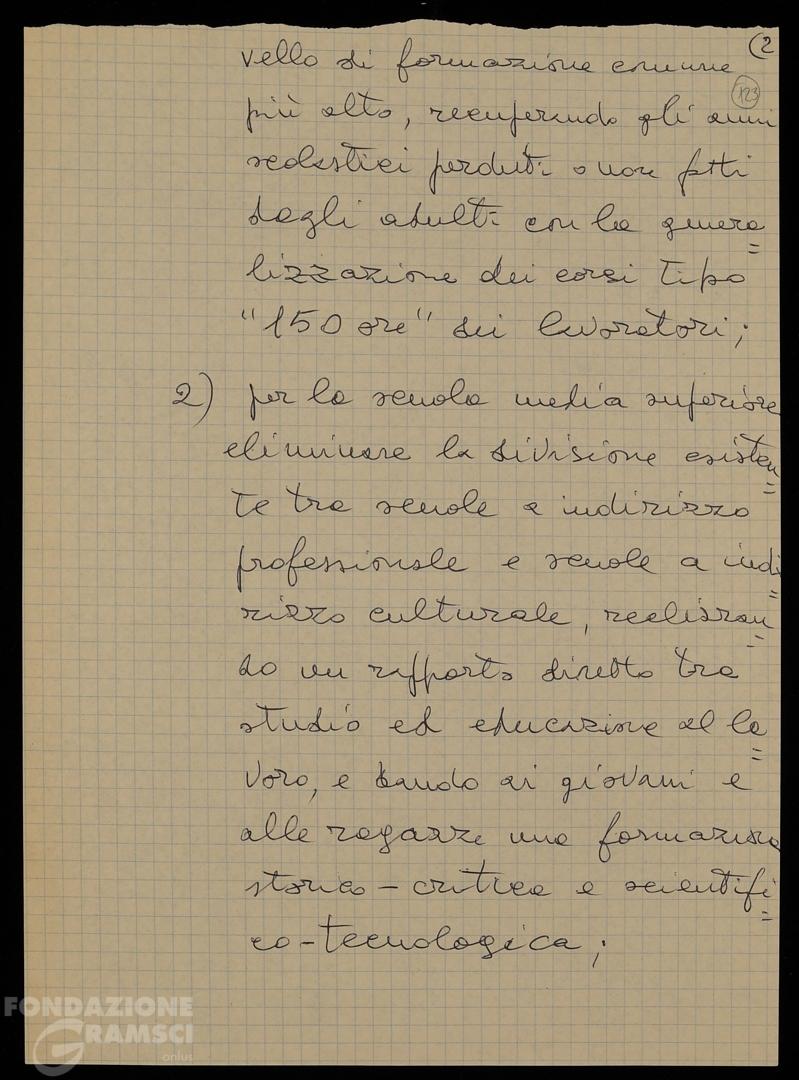 (2
123
vello di formazione comune
più alto, recuperando gli anni
scolastici perduti o non fatti
dagli adulti con la genera=
lizzazione dei corsi tipo
"150 ore" dei lavoratori;
2) per la scuola media superiore
eliminare la divisione esisten=
te tra scuole a indirizzo
professionale e scuole a indi=
rizzo culturale, realizzan=
do un rapporto diretto tra
studio ed educazione al la=
voro, e dando ai giovani e
alle ragazze una formazione
storico-critica e scientifi=
co-tecnologica;
FONDAZIONE
GRAMSCI
onlus